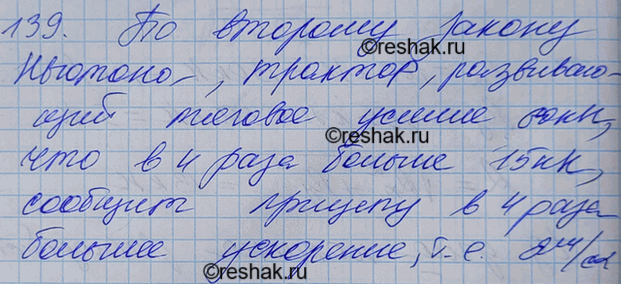 139. По второму закону
©reshak.ru
Ньютона, трактор, развиваю-
щий тяговое усилие 60кН,
©reshak.ru
что в 4 раза больше 15кН,
сообщит прицепу в 4 раза
большее ускорение, т.е. 2м/с2
©reshak.ru